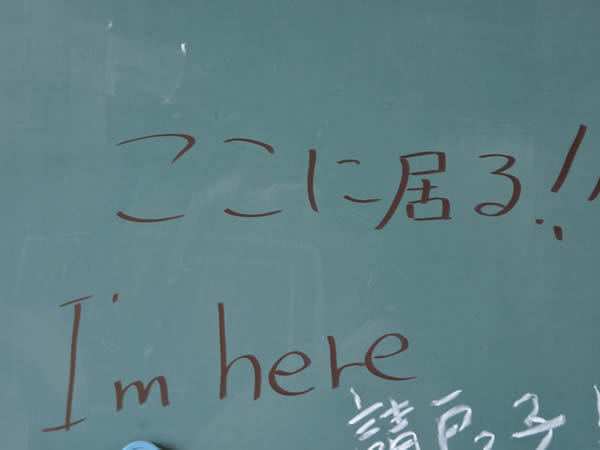 ここに居る!!
I'm here
請